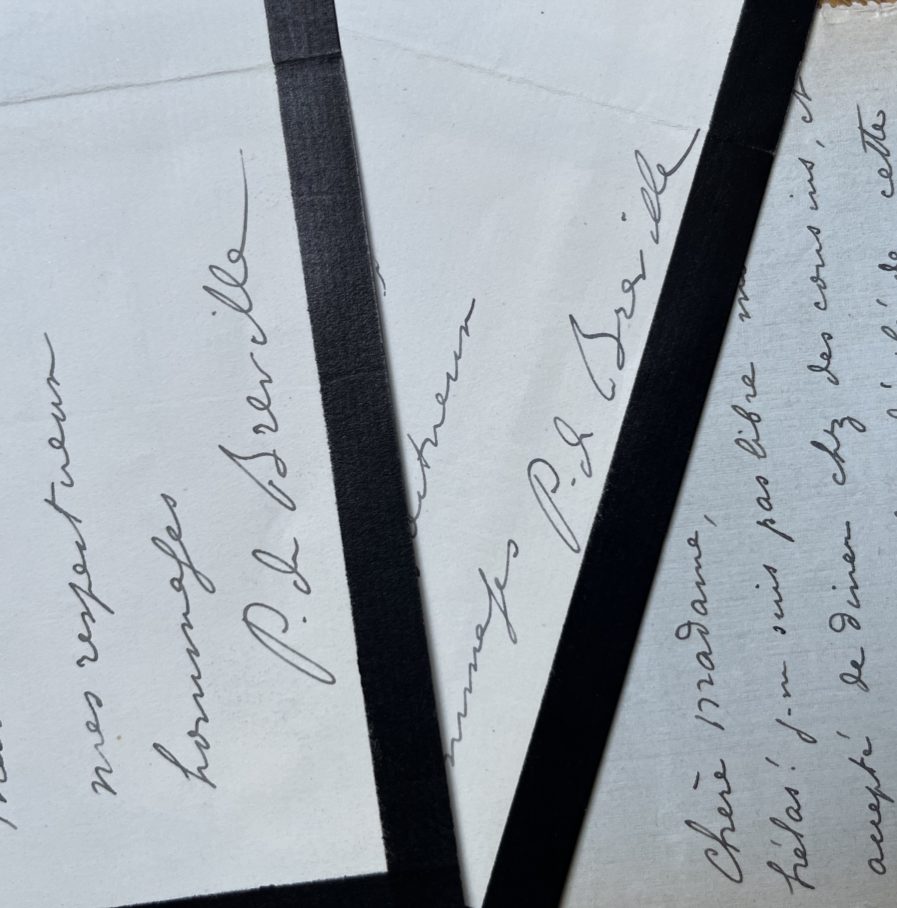 mes respectueux
hommages
P. de Breville
hommages
P. de Breville
Chère Madame,
hélas! je ne suis pas libre
accepté de diner chez des cousins, et
de cette